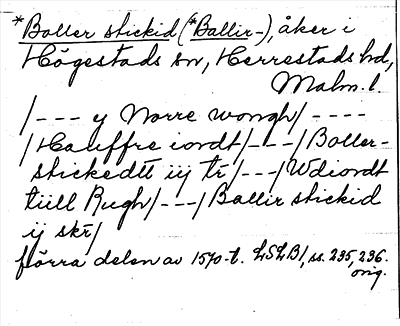 *Boller stickid (*Ballir-), åker i
Högestads sn, Herrestads hd,
Malm. l.
/--- y Norre wongh/----
/Hauffre iordt/---/Boller-
stickedtt iij tr/---/Wdiordt
tiill Rugh/---/Ballir stickid
ij skr/
förra delen av 1570-t. LSLB1, ss. 235, 236.
orig.